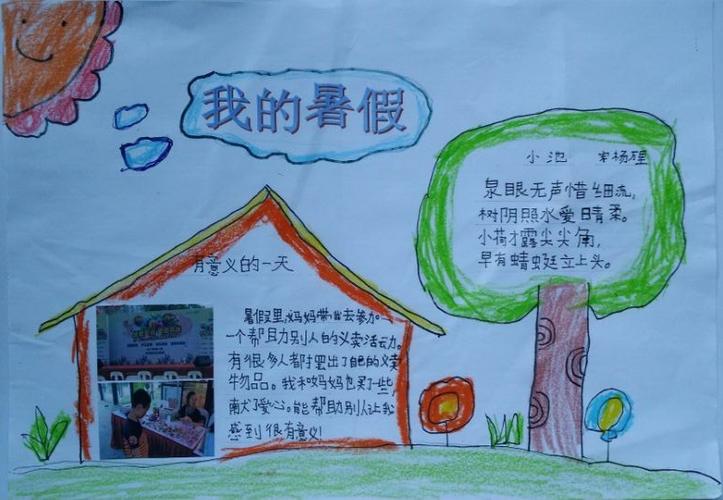 我的暑假
小池 宋杨理
泉眼无声惜细流,
树阴照水爱晴柔。
小荷才露尖尖角,
早有蜻蜓立上头。
有意义的一天
暑假里,妈妈带我去参加
一个帮助别人的义卖活动。
有很多人都摆出了自己的义卖
物品。我和妈妈也买了一些,
献了爱心。能帮助别人让我
感到很有意义!